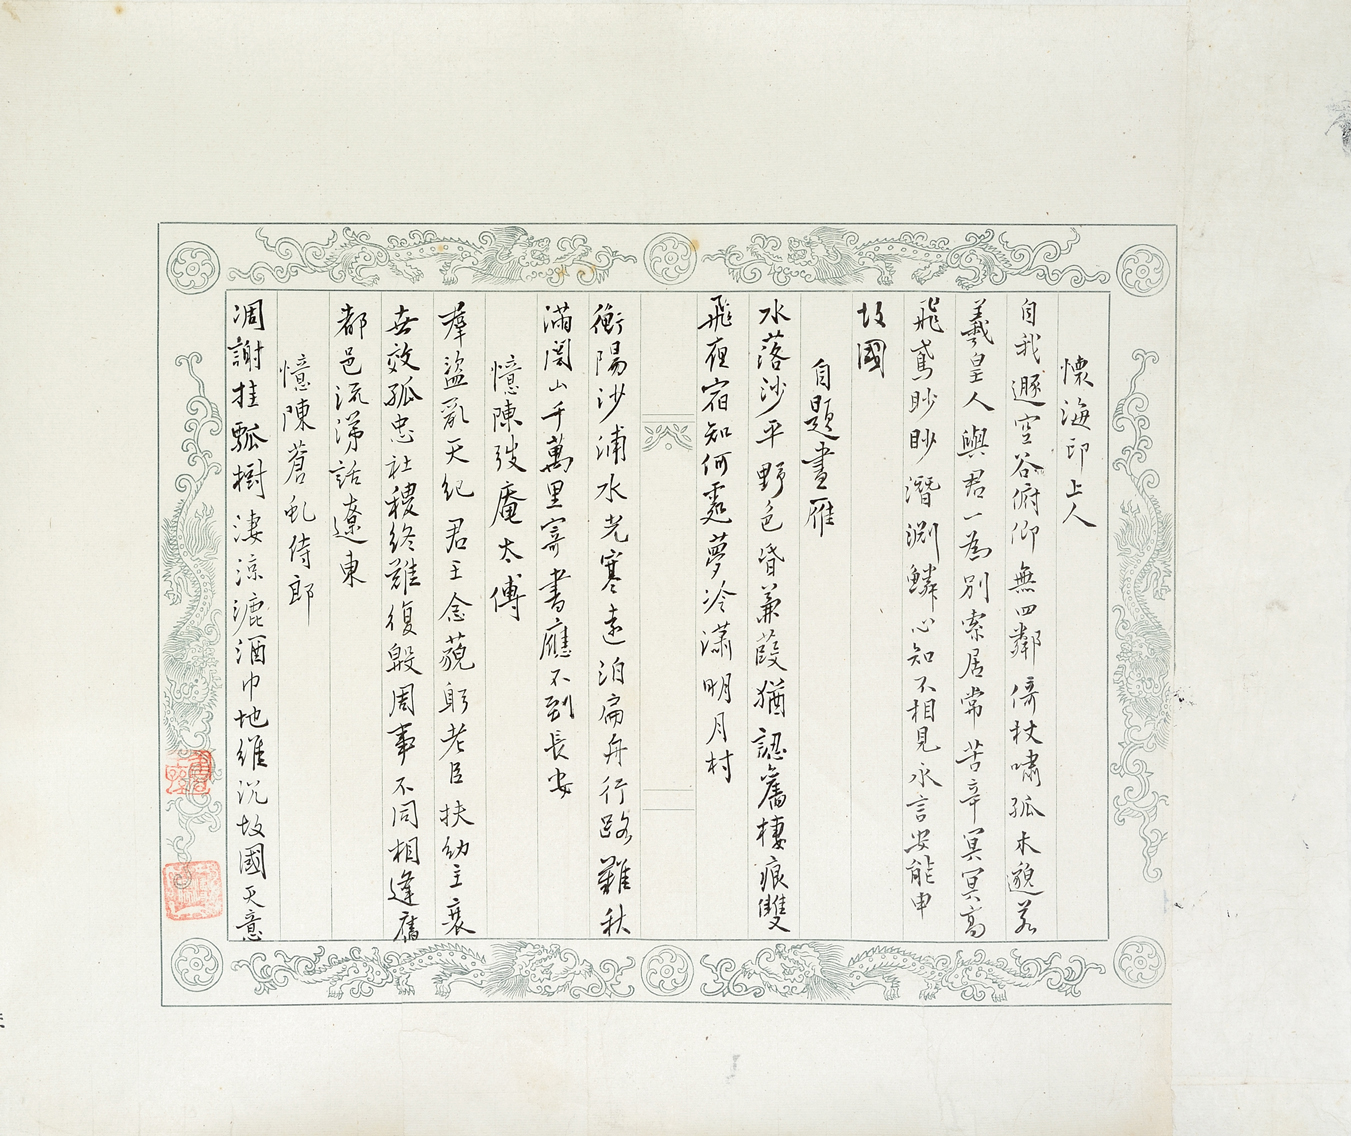 懷海印上人
自我遯空谷俯仰無四鄰倚杖嘯孤木邈若
羲皇人與君一為別索居常苦辛冥冥高
飛鳶眇眇潛淵鱗心知不相見永言安能申
故國
自題畫雁
水落沙平野色昏蒹葭猶認舊棲痕雙
飛夜宿知何處夢冷瀟明月村
衡陽沙浦水光寒遠泊扁舟行路難秋
滿關山千萬里寄書應不到長安
憶陳弢庵太傅
羣盜亂天紀君王念藐躬老臣扶幼主衰
去效孤忠社稷終難復殷周事不同相逢舊
都邑流涕話遼東
憶陳蒼虬侍郎
凋謝挂瓢樹淒涼漉酒巾地維沉故國天意